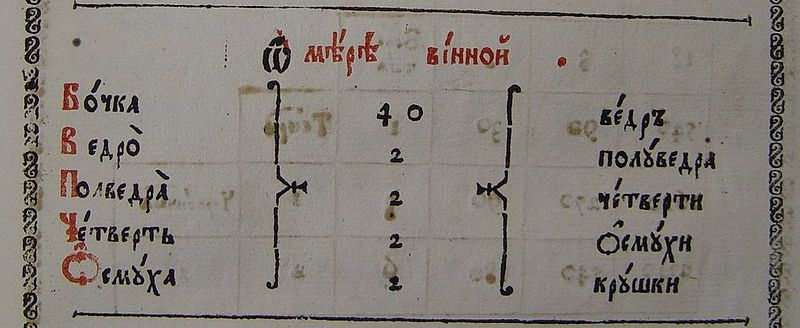 Ѿ мѣ́рѣ вїнно́й .
Бо́чка 40 ве́дръ
Ведро̀ 2 полꙋ́ведра
Полведра̀ 2 че́тверти
Че́тверть 2 ѻ҆смꙋ́хи
Ѻ҆смꙋ́ха 2 крꙋ́шки